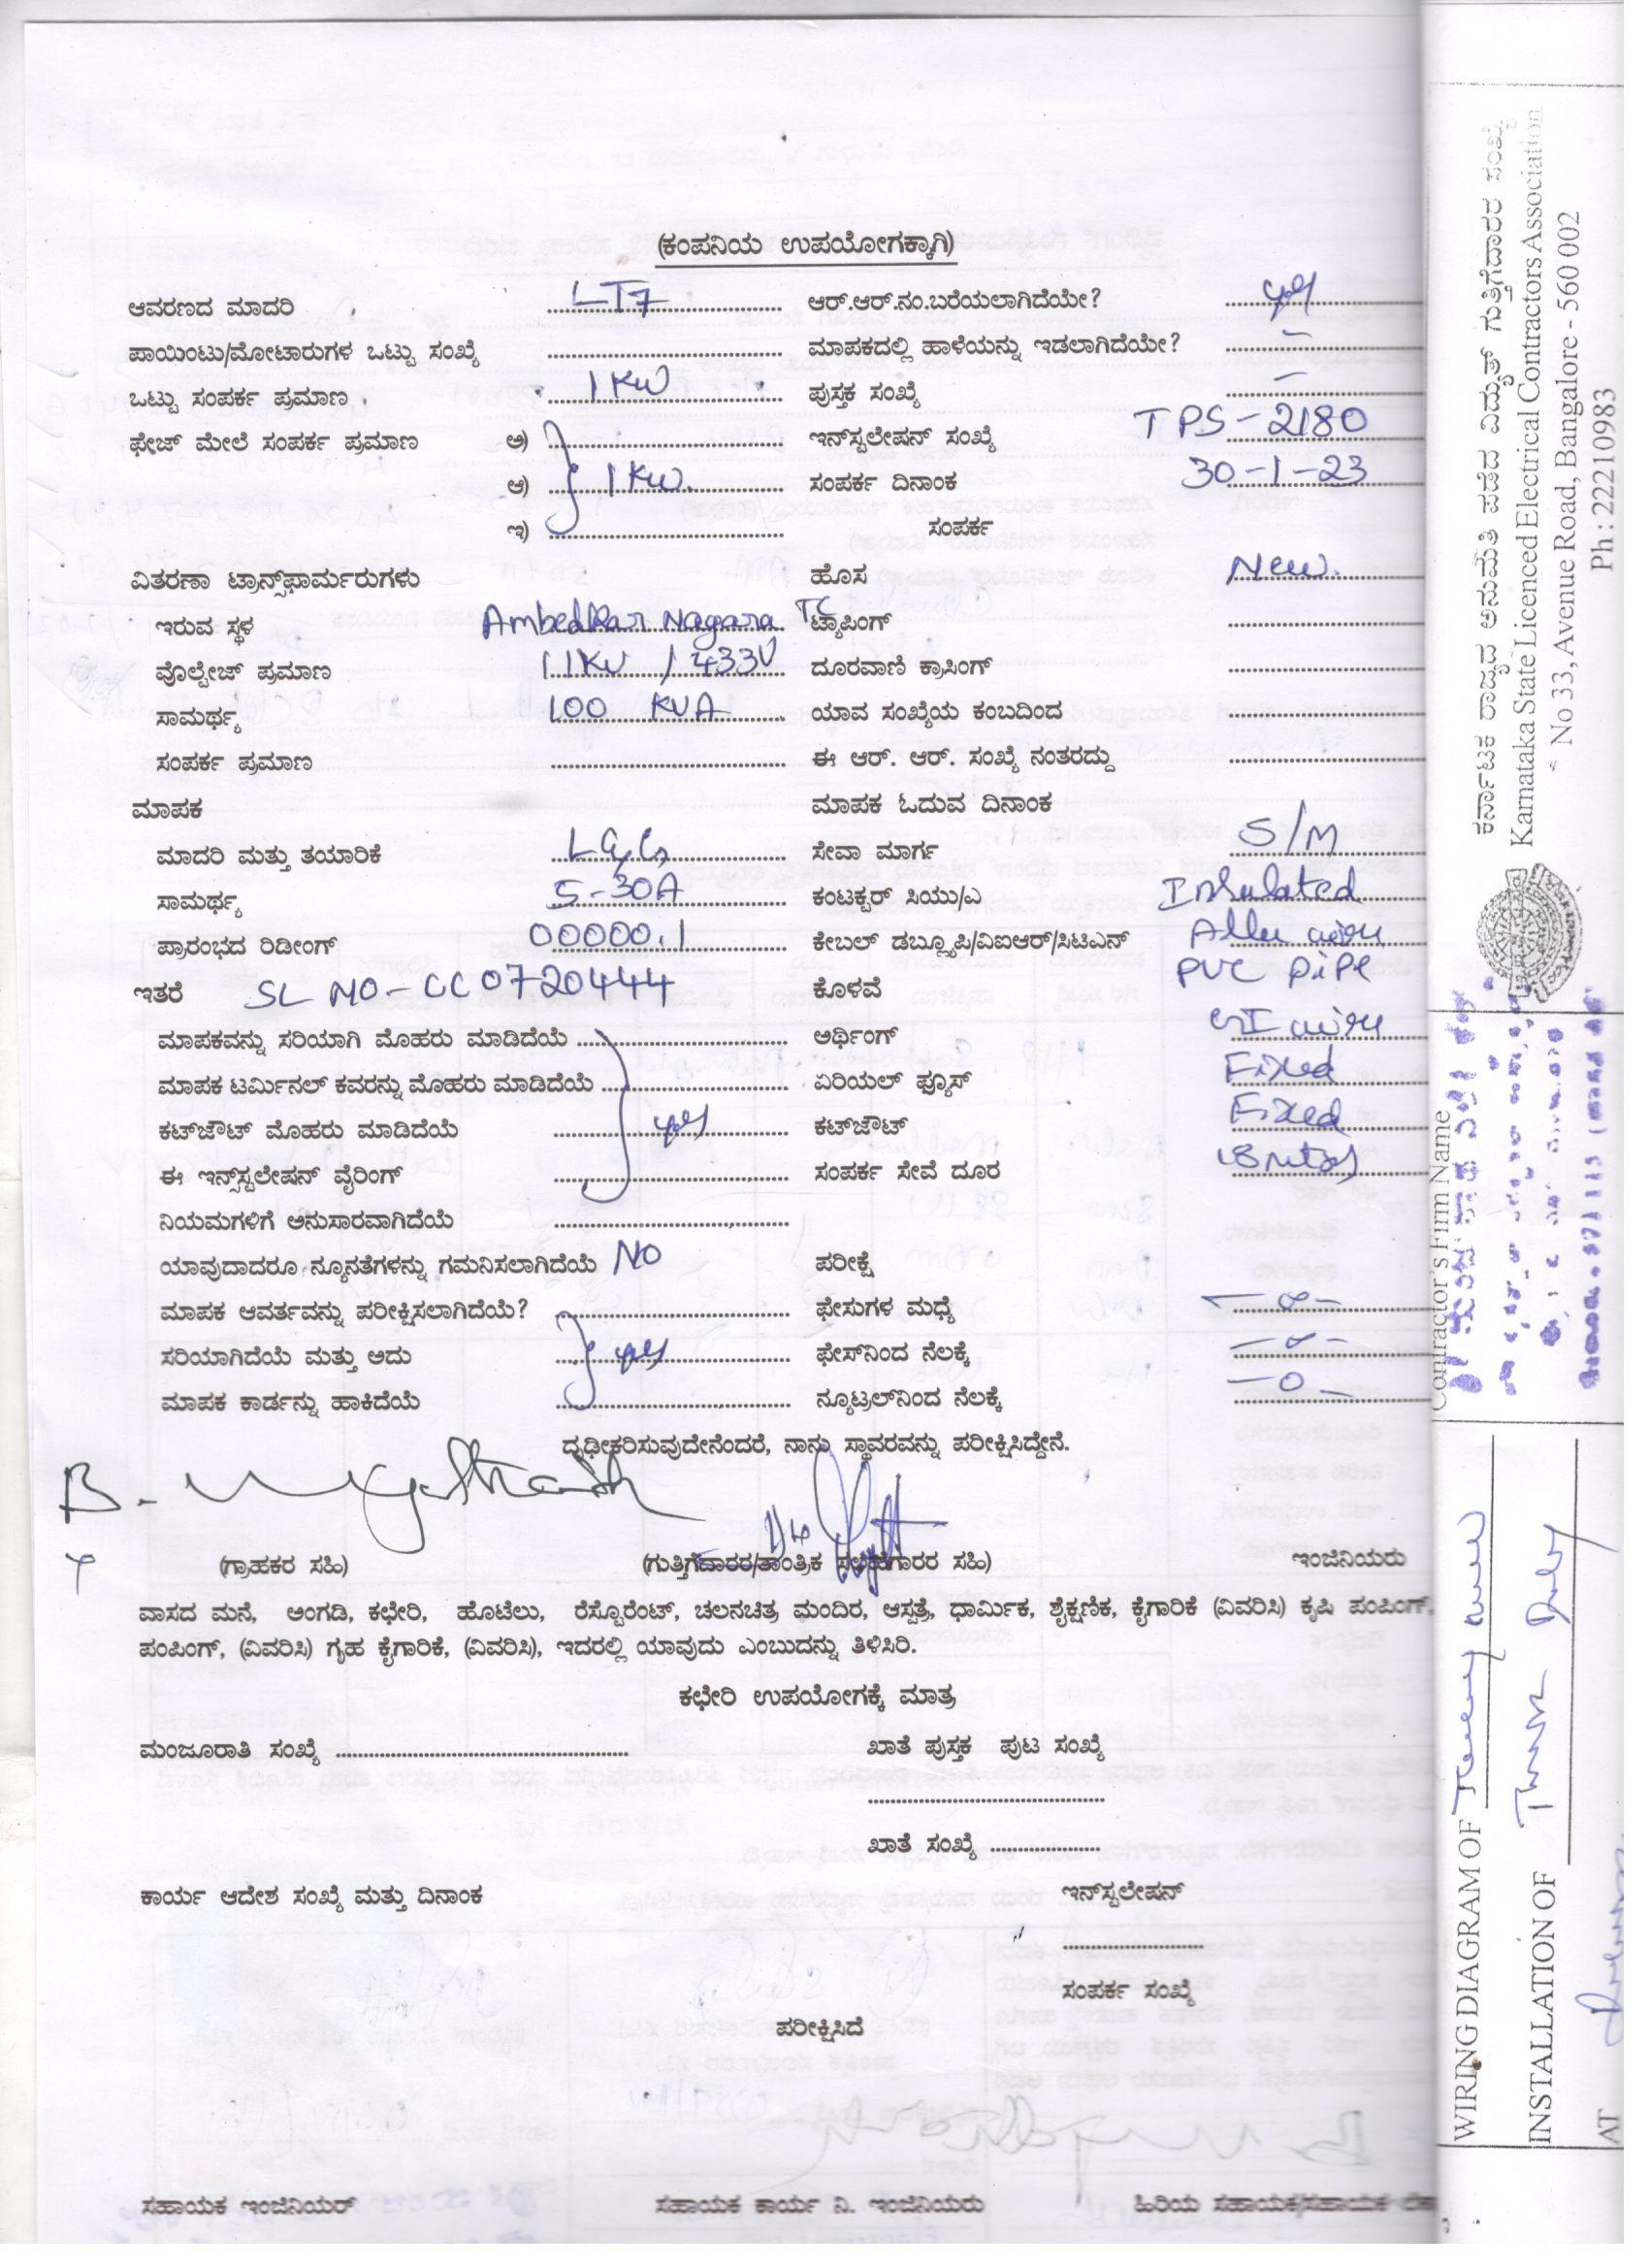 (ಕಂಪನಿಯ ಉಪಯೋಗಕ್ಕಾಗಿ)
ಆವರಣದ ಮಾದರಿ LT7 ಆರ್.ಆರ್.ನಂ.ಬರೆಯಲಾಗಿದೆಯೇ? yes
ಪಾಯಿಂಟು/ಮೋಟಾರುಗಳ ಒಟ್ಟು ಸಂಖ್ಯೆ ಮಾಪಕದಲ್ಲಿ ಹಾಳೆಯನ್ನು ಇಡಲಾಗಿದೆಯೇ? –
ಒಟ್ಟು ಸಂಪರ್ಕ ಪ್ರಮಾಣ 1KW ಪುಸ್ತಕ ಸಂಖ್ಯೆ –
ಫೇಜ್ ಮೇಲೆ ಸಂಪರ್ಕ ಪ್ರಮಾಣ ಅ) ಇನ್‌ಸ್ಟಲೇಷನ್ ಸಂಖ್ಯೆ TPS-2180
ಆ) 1KW. ಸಂಪರ್ಕ ದಿನಾಂಕ 30-1-23
ಇ) ಸಂಪರ್ಕ
ವಿತರಣಾ ಟ್ರಾನ್ಸ್‌ಫಾರ್ಮರುಗಳು ಹೊಸ New.
ಇರುವ ಸ್ಥಳ Ambedkar Nagara TC ಟ್ಯಾಪಿಂಗ್
ವೊಲ್ಟೇಜ್ ಪ್ರಮಾಣ 11KV / 433V ದೂರವಾಣಿ ಕ್ರಾಸಿಂಗ್
ಸಾಮರ್ಥ್ಯ 100 KVA ಯಾವ ಸಂಖ್ಯೆಯ ಕಂಬದಿಂದ
ಸಂಪರ್ಕ ಪ್ರಮಾಣ ಈ ಆರ್. ಆರ್. ಸಂಖ್ಯೆ ನಂತರದ್ದು
ಮಾಪಕ ಮಾಪಕ ಓದುವ ದಿನಾಂಕ
ಮಾದರಿ ಮತ್ತು ತಯಾರಿಕೆ L&G ಸೇವಾ ಮಾರ್ಗ S/M
ಸಾಮರ್ಥ್ಯ 5-30A ಕಂಟಕ್ಟರ್ ಸಿಯು/ಎ Insulated
ಪ್ರಾರಂಭದ ರಿಡೀಂಗ್ 00000.1 ಕೇಬಲ್ ಡಬ್ಲ್ಯೂಪಿ/ವಿಐಆರ್/ಸಿಟಿಎನ್ Allu wire
ಇತರೆ SL NO-CC0720444 ಕೊಳವೆ PVC Pipe
ಮಾಪಕವನ್ನು ಸರಿಯಾಗಿ ಮೊಹರು ಮಾಡಿದೆಯೆ ಅರ್ಥಿಂಗ್ GI wire
ಮಾಪಕ ಟರ್ಮಿನಲ್ ಕವರನ್ನು ಮೊಹರು ಮಾಡಿದೆಯೆ ಏರಿಯಲ್ ಫ್ಯೂಸ್ Fixed
ಕಟ್‌ಜೌಟ್ ಮೊಹರು ಮಾಡಿದೆಯೆ yes ಕಟ್‌ಜೌಟ್ Fixed
ಈ ಇನ್ಸ್‌ಸ್ಟಲೇಷನ್ ವೈರಿಂಗ್ ಸಂಪರ್ಕ ಸೇವೆ ದೂರ 18
ನಿಯಮಗಳಿಗೆ ಅನುಸಾರವಾಗಿದೆಯೆ
ಯಾವುದಾದರೂ ನ್ಯೂನತೆಗಳನ್ನು ಗಮನಿಸಲಾಗಿದೆಯೆ NO ಪರೀಕ್ಷೆ
ಮಾಪಕ ಆವರ್ತವನ್ನು ಪರೀಕ್ಷಿಸಲಾಗಿದೆಯೆ? ಫೇಸುಗಳ ಮಧ್ಯೆ
ಸರಿಯಾಗಿದೆಯೆ ಮತ್ತು ಅದು yes ಫೇಸ್‌ನಿಂದ ನೆಲಕ್ಕೆ
ಮಾಪಕ ಕಾರ್ಡನ್ನು ಹಾಕಿದೆಯೆ ನ್ಯೂಟ್ರಲ್‌ನಿಂದ ನೆಲಕ್ಕೆ –0–
ದೃಢೀಕರಿಸುವುದೇನೆಂದರೆ, ನಾನು ಸ್ಥಾವರವನ್ನು ಪರೀಕ್ಷಿಸಿದ್ದೇನೆ.
(ಗ್ರಾಹಕರ ಸಹಿ) (ಗುತ್ತಿಗೆದಾರರ/ತಾಂತ್ರಿಕ ಸಲಹೆಗಾರರ ಸಹಿ) ಇಂಜಿನಿಯರು
ವಾಸದ ಮನೆ, ಅಂಗಡಿ, ಕಛೇರಿ, ಹೊಟೆಲು, ರೆಸ್ಟೊರೆಂಟ್, ಚಲನಚಿತ್ರ ಮಂದಿರ, ಆಸ್ಪತ್ರೆ, ಧಾರ್ಮಿಕ, ಶೈಕ್ಷಣಿಕ, ಕೈಗಾರಿಕೆ (ವಿವರಿಸಿ) ಕೃಷಿ ಪಂಪಿಂಗ್,
ಪಂಪಿಂಗ್, (ವಿವರಿಸಿ) ಗೃಹ ಕೈಗಾರಿಕೆ, (ವಿವರಿಸಿ), ಇದರಲ್ಲಿ ಯಾವುದು ಎಂಬುದನ್ನು ತಿಳಿಸಿರಿ.
ಕಛೇರಿ ಉಪಯೋಗಕ್ಕೆ ಮಾತ್ರ
ಮಂಜೂರಾತಿ ಸಂಖ್ಯೆ ಖಾತೆ ಪುಸ್ತಕ ಪುಟ ಸಂಖ್ಯೆ
ಖಾತೆ ಸಂಖ್ಯೆ
ಕಾರ್ಯ ಆದೇಶ ಸಂಖ್ಯೆ ಮತ್ತು ದಿನಾಂಕ ಇನ್‌ಸ್ಟಲೇಷನ್
ಸಂಪರ್ಕ ಸಂಖ್ಯೆ
ಪರೀಕ್ಷಿಸಿದೆ
ಸಹಾಯಕ ಇಂಜಿನಿಯರ್ ಸಹಾಯಕ ಕಾರ್ಯ ನಿ. ಇಂಜಿನಿಯರು ಹಿರಿಯ ಸಹಾಯಕ/ಸಹಾಯಕ
ಕರ್ನಾಟಕ ರಾಜ್ಯದ ಅನುಮತಿ ಪಡೆದ ವಿದ್ಯುತ್ ಗುತ್ತಿಗೆದಾರರ ಸಂಸ್ಥೆ
Karnataka State Licenced Electrical Contractors Association
No 33, Avenue Road, Bangalore - 560 002
Ph : 22210983
Contractor's Firm Name
WIRING DIAGRAM OF
INSTALLATION OF
AT